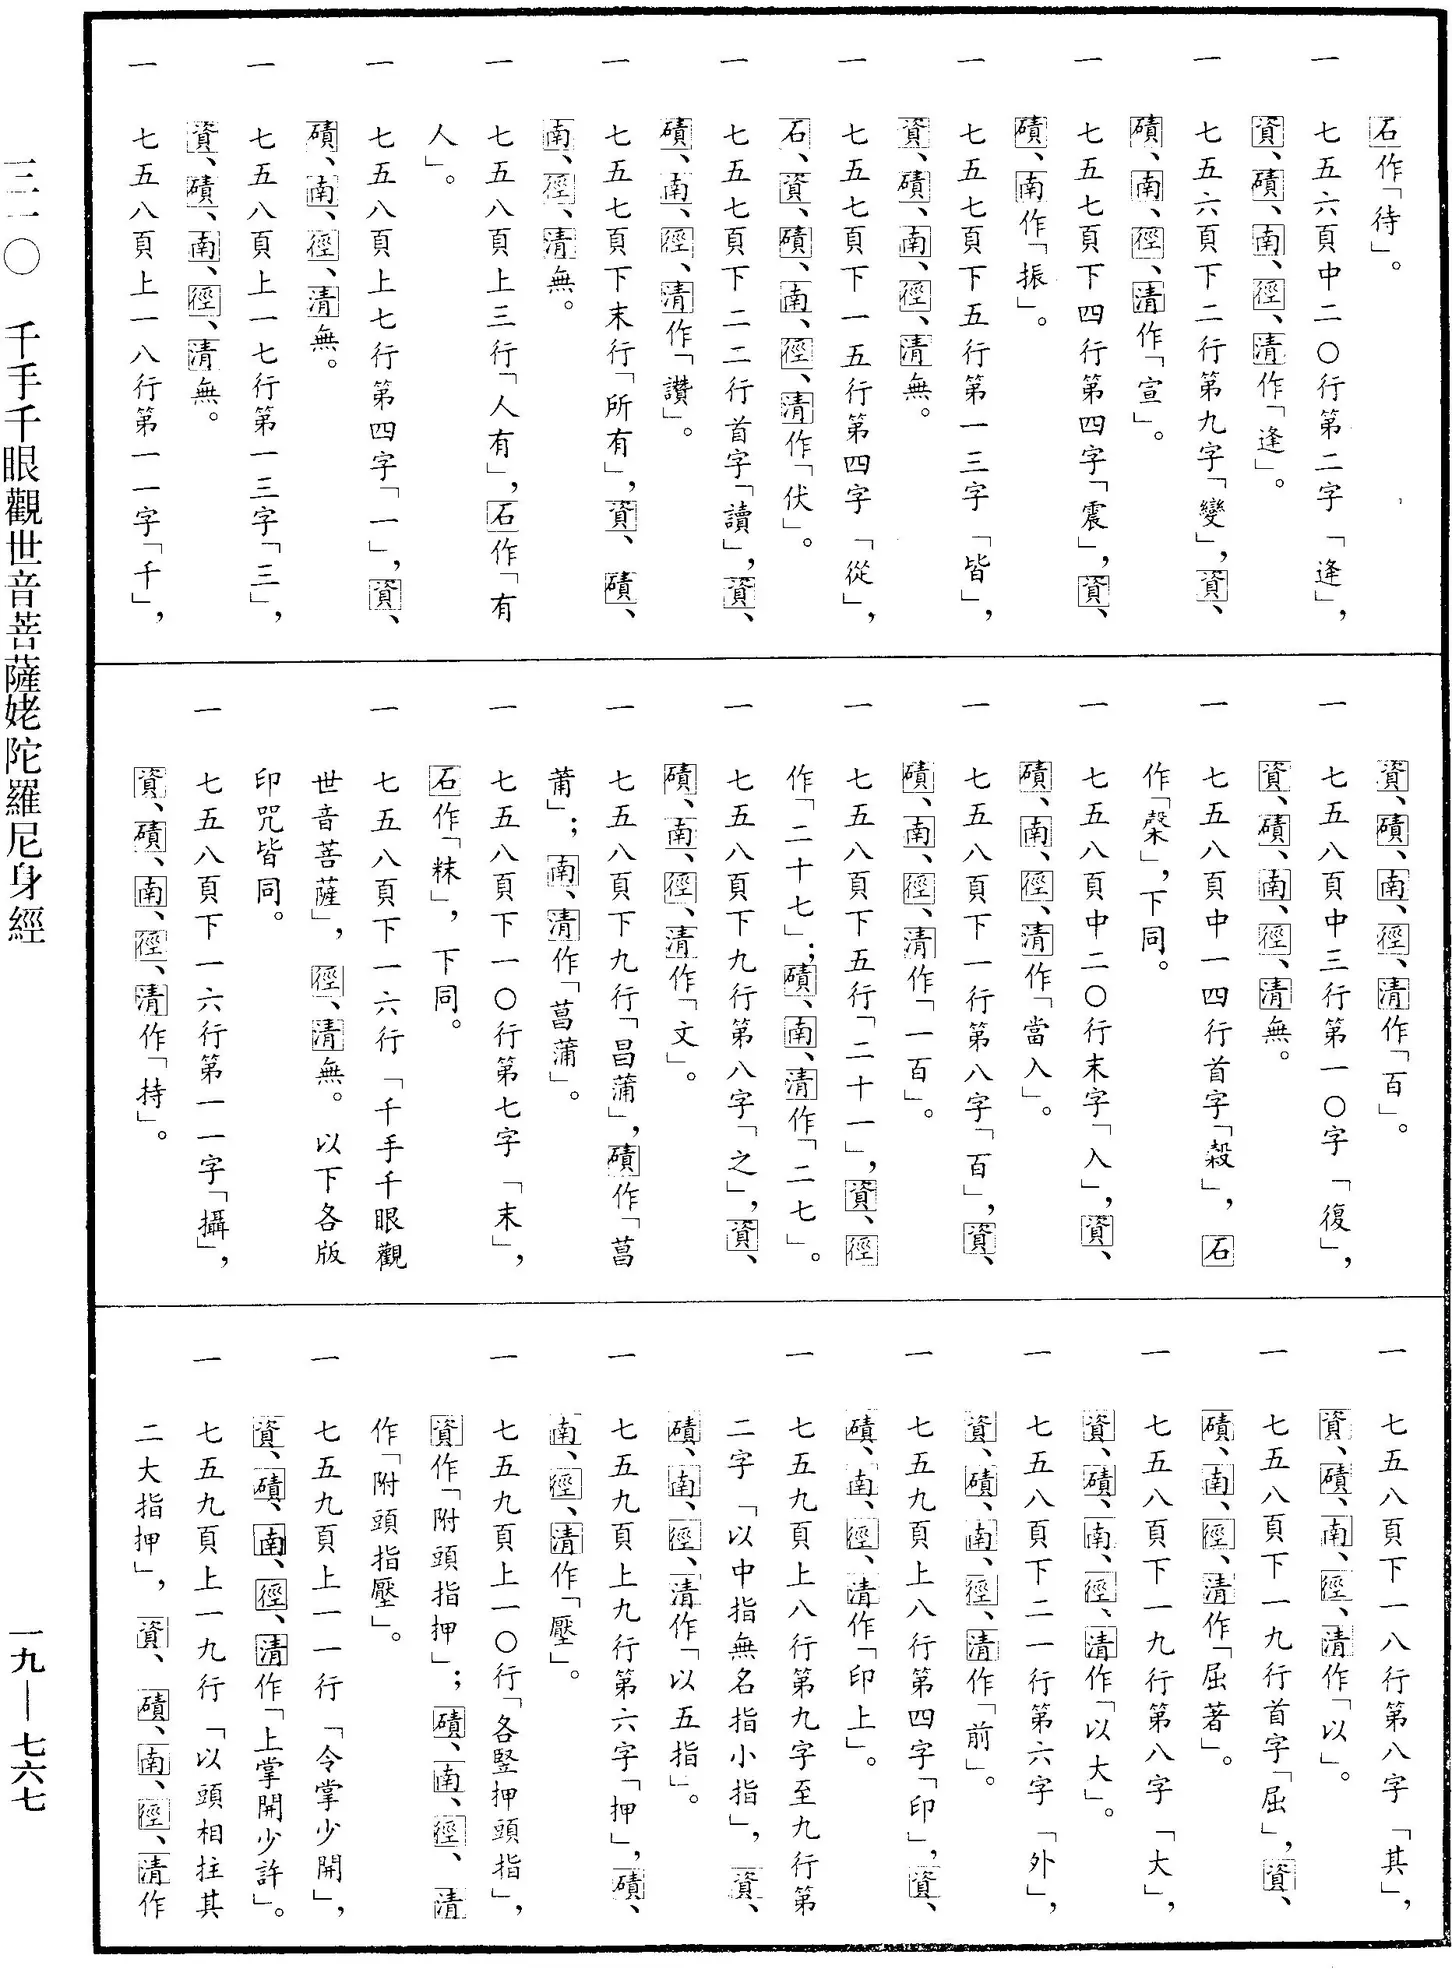 石作「待」。
一 七五六頁中二〇行第二字「逄」，
資、磧、南、徑、清作「逢」。
一 七五六頁下二行第九字「變」，資、
磧、南、徑、清作「宣」。
一 七五七頁下四行第四字「震」，資、
磧、南作「振」。
一 七五七頁下五行第一三字「皆」，
資、磧、南、徑、清無。
一 七五七頁下一五行第四字「從」，
石、資、磧、南、徑、清作「伏」。
一 七五七頁下二二行首字「讀」，資、
磧、南、徑、清作「讚」。
一 七五七頁下末行「所有」，資、磧、
南、徑、清無。
一 七五八頁上三行「人有」，石作「有
人」。
一 七五八頁上七行第四字「一」，資、
磧、南、徑、清無。
一 七五八頁上一七行第一三字「三」，
資、磧、南、徑、清無。
一 七五八頁上一八行第一一字「千」，
資、磧、南、徑、清作「百」。
一 七五八頁中三行第一〇字「復」，
資、磧、南、徑、清無。
一 七五八頁中一四行首字「穀」，石
作「槃」，下同。
一 七五八頁中二〇行末字「入」，資、
磧、南、徑、清作「當入」。
一 七五八頁下一行第八字「百」，資、
磧、南、徑、清作「一百」。
一 七五八頁下五行「二十一」，資、徑
作「二十七」；磧、南、清作「二七」。
一 七五八頁下九行第八字「之」，資、
磧、南、徑、清作「文」。
一 七五八頁下九行「昌蒲」，磧作「菖
莆」；南、清作「菖蒲」。
一 七五八頁下一〇行第七字「末」，
石作「粖」，下同。
一 七五八頁下一六行「千手千眼觀
世音菩薩」，徑、清無。以下各版
印咒皆同。
一 七五八頁下一六行第一一字「攝」，
資、磧、南、徑、清作「持」。
一 七五八頁下一八行第八字「其」，
資、磧、南、徑、清作「以」。
一 七五八頁下一九行首字「屈」，資、
磧、南、徑、清作「屈著」。
一 七五八頁下一九行第八字「大」，
資、磧、南、徑、清作「以大」。
一 七五八頁下二一行第六字「外」，
資、磧、南、徑、清作「前」。
一 七五九頁上八行第四字「印」，資、
磧、南、徑、清作「印上」。
一 七五九頁上八行第九字至九行第
二字「以中指無名指小指」，資、
磧、南、徑、清作「以五指」。
一 七五九頁上九行第六字「押」，磧、
南、徑、清作「壓」。
一 七五九頁上一〇行「各竪押頭指」，
資作「附頭指押」；磧、南、徑、清
作「附頭指壓」。
一 七五九頁上一一行「令掌少開」，
資、磧、南、徑、清作「上掌開少許」。
一 七五九頁上一九行「以頭相拄其
二大指押」，資、磧、南、徑、清作
三一〇 千手千眼觀世音菩薩姥陀羅尼身經
一九—七六七